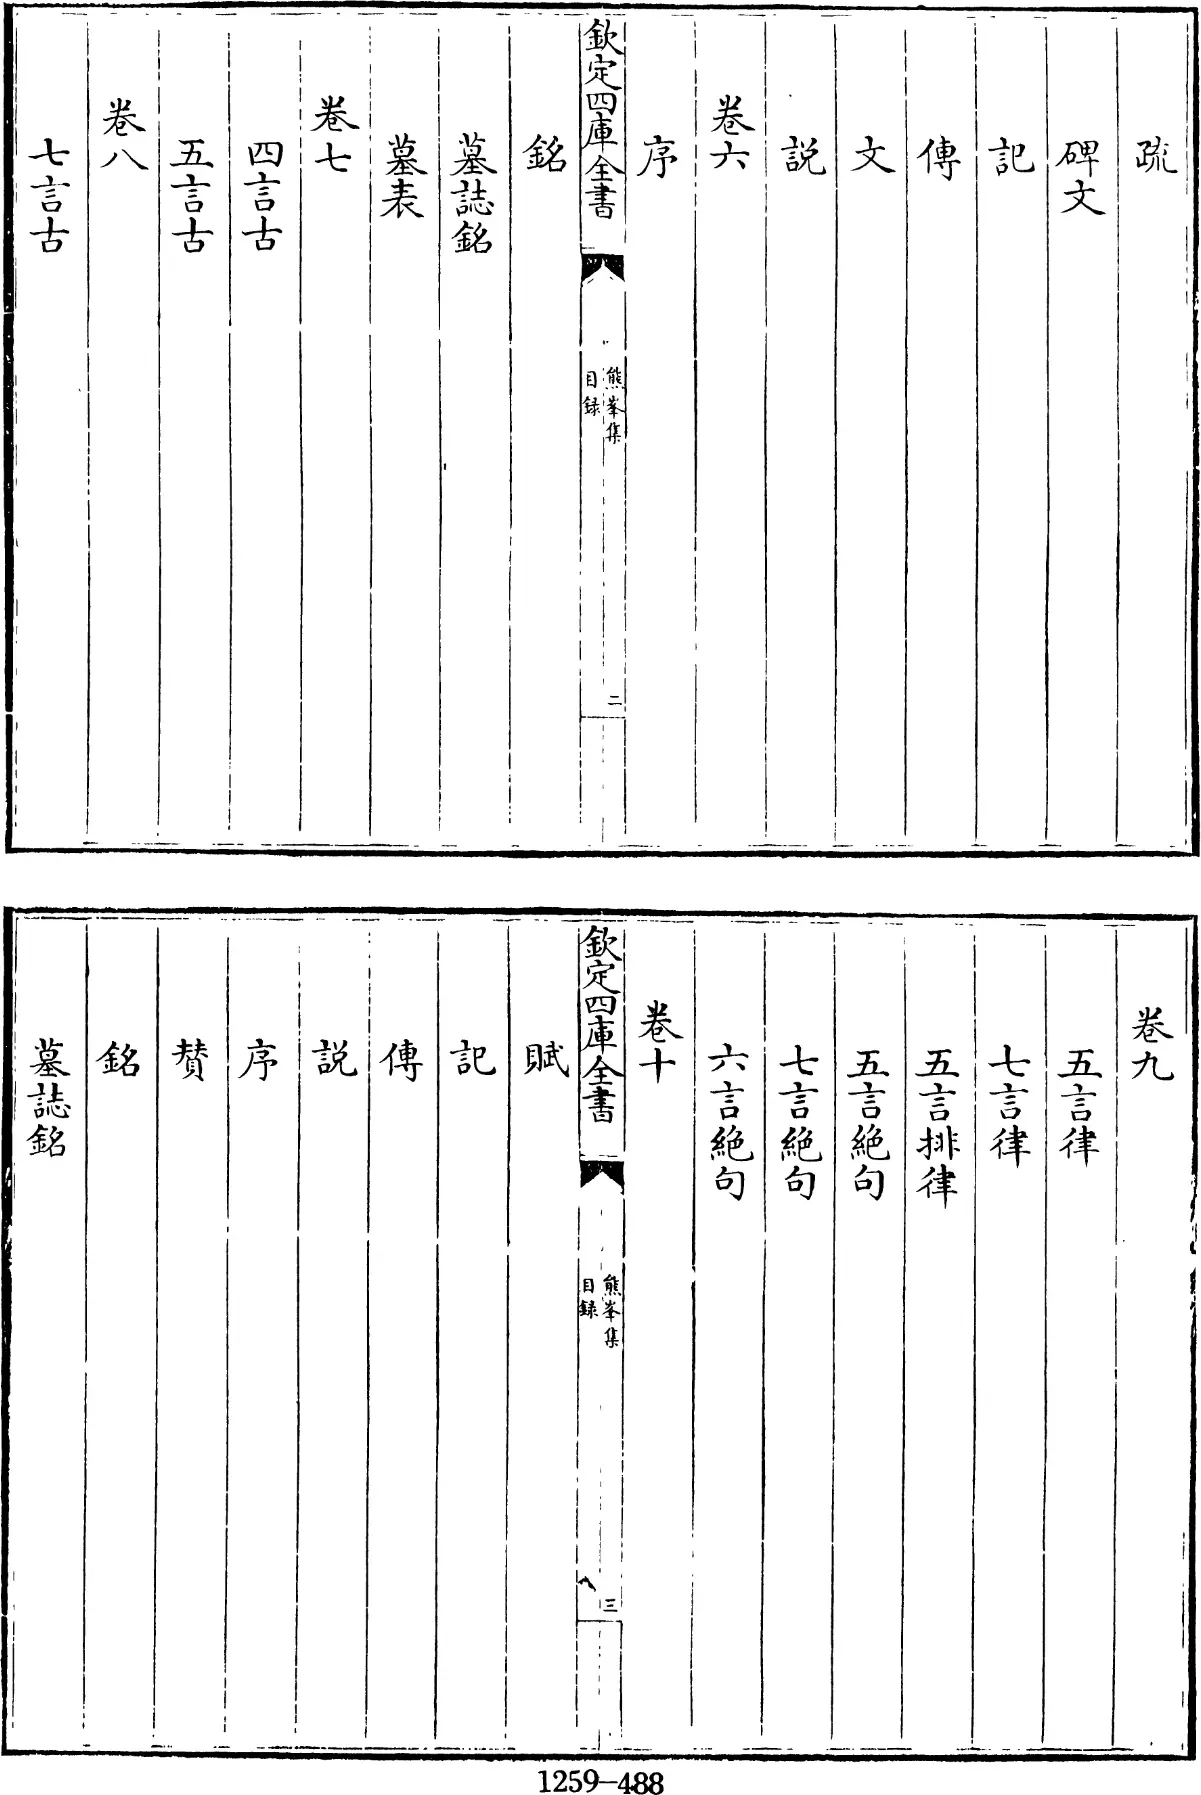 疏
碑文
記
傳
文
説
卷六
序
欽定四庫全書
熊峯集
目録
二
銘
墓誌銘
墓表
卷七
四言古
五言古
卷八
七言古
卷九
五言律
七言律
五言排律
五言絶句
七言絶句
六言絶句
卷十
欽定四庫全書
熊峯集
目録
三
賦
記
傳
説
序
賛
銘
墓誌銘
1259-488